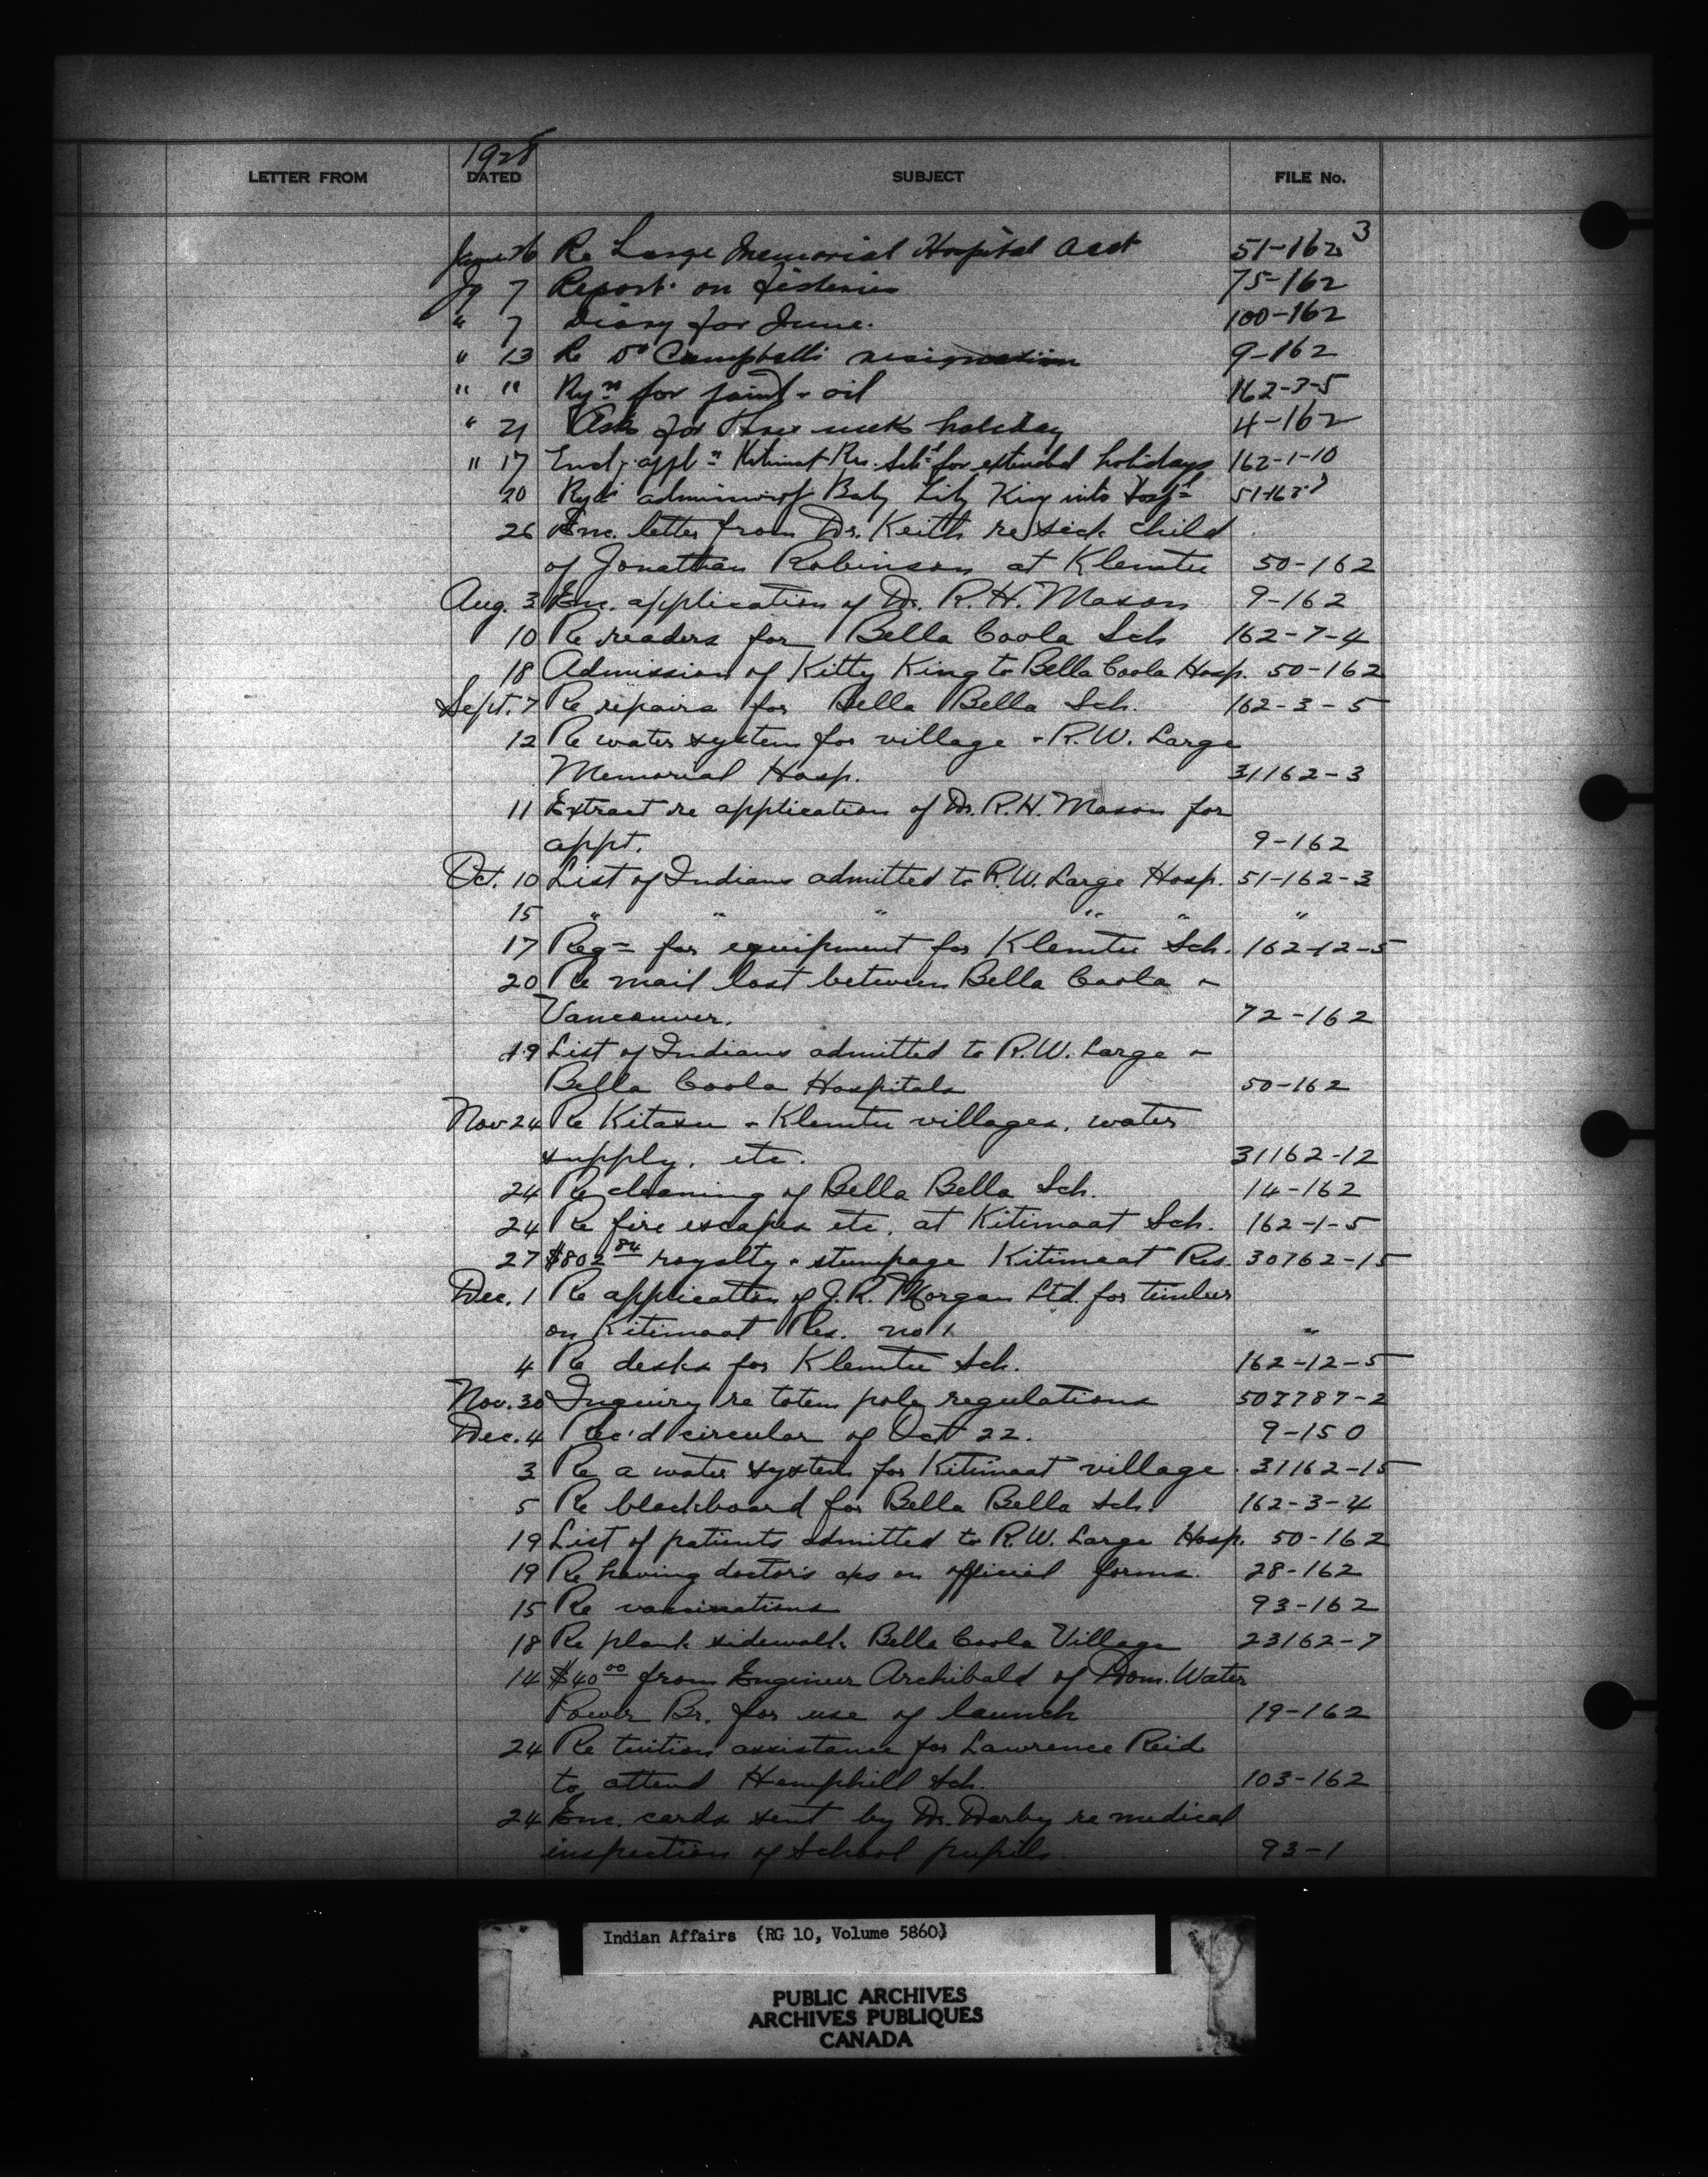 1928
LETTER FROM DATED SUBJECT FILE No.
June 26 Re Large Memorial Hospital acct 51-162-3
Jy 7 Report on fisheries 75-162
" 7 Diary for June. 100-162
" 13 Re Dr Campbell's resignation 9-162
" " Rqn for paint & oil 162-3-5
" 21 Asks for three weeks holiday 4-162
" 17 Encl. appln Kitimat Res. Schl for extended holidays 162-1-10
20 Baby Lily King into Hospl
26 Enc. letter from Dr. Keith re sick child
of Jonathan Robinson at Klemtu 50-162
Aug. 3 Enc. application of Dr. R.H. Mason 9-162
10 Re readers for Bella Coola Sch 162-7-4
18 Admission of Kitty King to Bella Coola Hosp. 50-162
Sept. 7 Re repairs for Bella Bella Sch. 162-3-5
12 Re water system for village & R.W. Large
Memorial Hosp. 31162-3
11 Extract re application of Dr. R.H. Mason for
appt. 9-162
Oct. 10 List of Indians admitted to R.W. Large Hosp. 51-162-3
15 " " " " " "
17 Reqn for equipment for Klemtu Sch. 162-12-5
20 Re mail lost between Bella Coola &
Vancouver. 72-162
19 List of Indians admitted to R.W. Large &
Bella Coola Hospitals 50-162
Nov 24 Re Kitasu & Klemtu villages, water
supply, etc. 31162-12
24 Re cleaning of Bella Bella Sch. 14-162
24 Re fire escapes etc. at Kitimaat Sch. 162-1-5
27 $802 84 royalty & stumpage Kitimaat Res. 30762-15
Dec. 1 Re application of J.R. Morgan Ltd. for timber
on Kitimaat Res. no 1. "
4 Re desks for Klemtu Sch. 162-12-5
Nov. 30 Inquiry re totem pole regulations 507787-2
Dec. 4 Rec'd circular of Oct 22. 9-150
3 Re a water system for Kitimaat village. 31162-15
5 Re blackboard for Bella Bella Sch. 162-3-4
19 List of patients admitted to R.W. Large Hosp. 50-162
19 Re having doctor's a/cs on official forms. 28-162
15 Re vaccinations 93-162
18 Re plank sidewalk Bella Coola Village 23162-7
14 $40 00 from Engineer Archibald of Dom. Water
Power Br. for use of launch 19-162
24 Re tuition assistance for Lawrence Reid
to attend Hemphill Sch. 103-162
24 Enc. cards sent by Dr. Darby re medical
inspection of School pupils. 93-1
Indian Affairs (RG 10, Volume 5860)
PUBLIC ARCHIVES
ARCHIVES PUBLIQUES
CANADA